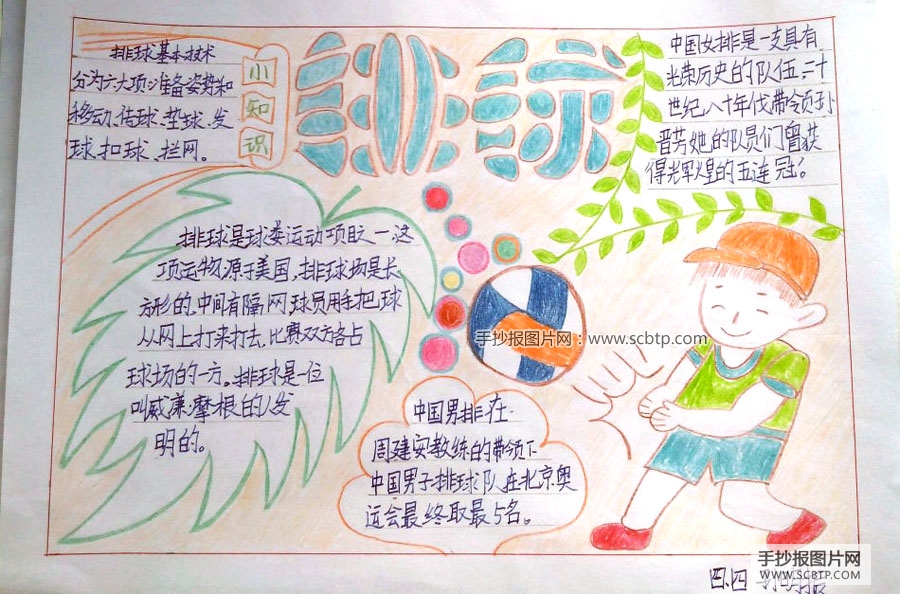 排球
小知识
排球基本技术
分为六大项:准备姿势和
移动、传球、垫球、发
球、扣球、拦网。
中国女排是一支具有
光荣历史的队伍,二十
世纪八十年代带领孙
晋芳她的队员们曾获
得辉煌的五连冠!
排球是球类运动项目之一,这
项运动源于美国,排球场是长
方形的,中间有隔网,球员用手把球
从网上打来打去,比赛双方各占
球场的一方。排球是一位
叫威廉·摩根的人发
明的。
手抄报图片网:www.scbtp.com
中国男排在
周建安教练的带领下
中国男子排球队在北京奥
运会最终取最5名。
手抄报图片网
WWW.SCBTP.COM
四.四